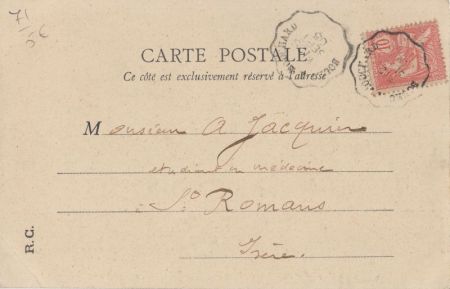 71/
5€
CARTE POSTALE
Ce côté est exclusivement réservé à l'adresse
10
Monsieur A Jacquier
etudiant en médecine
St Romans
Isère.
R.C.